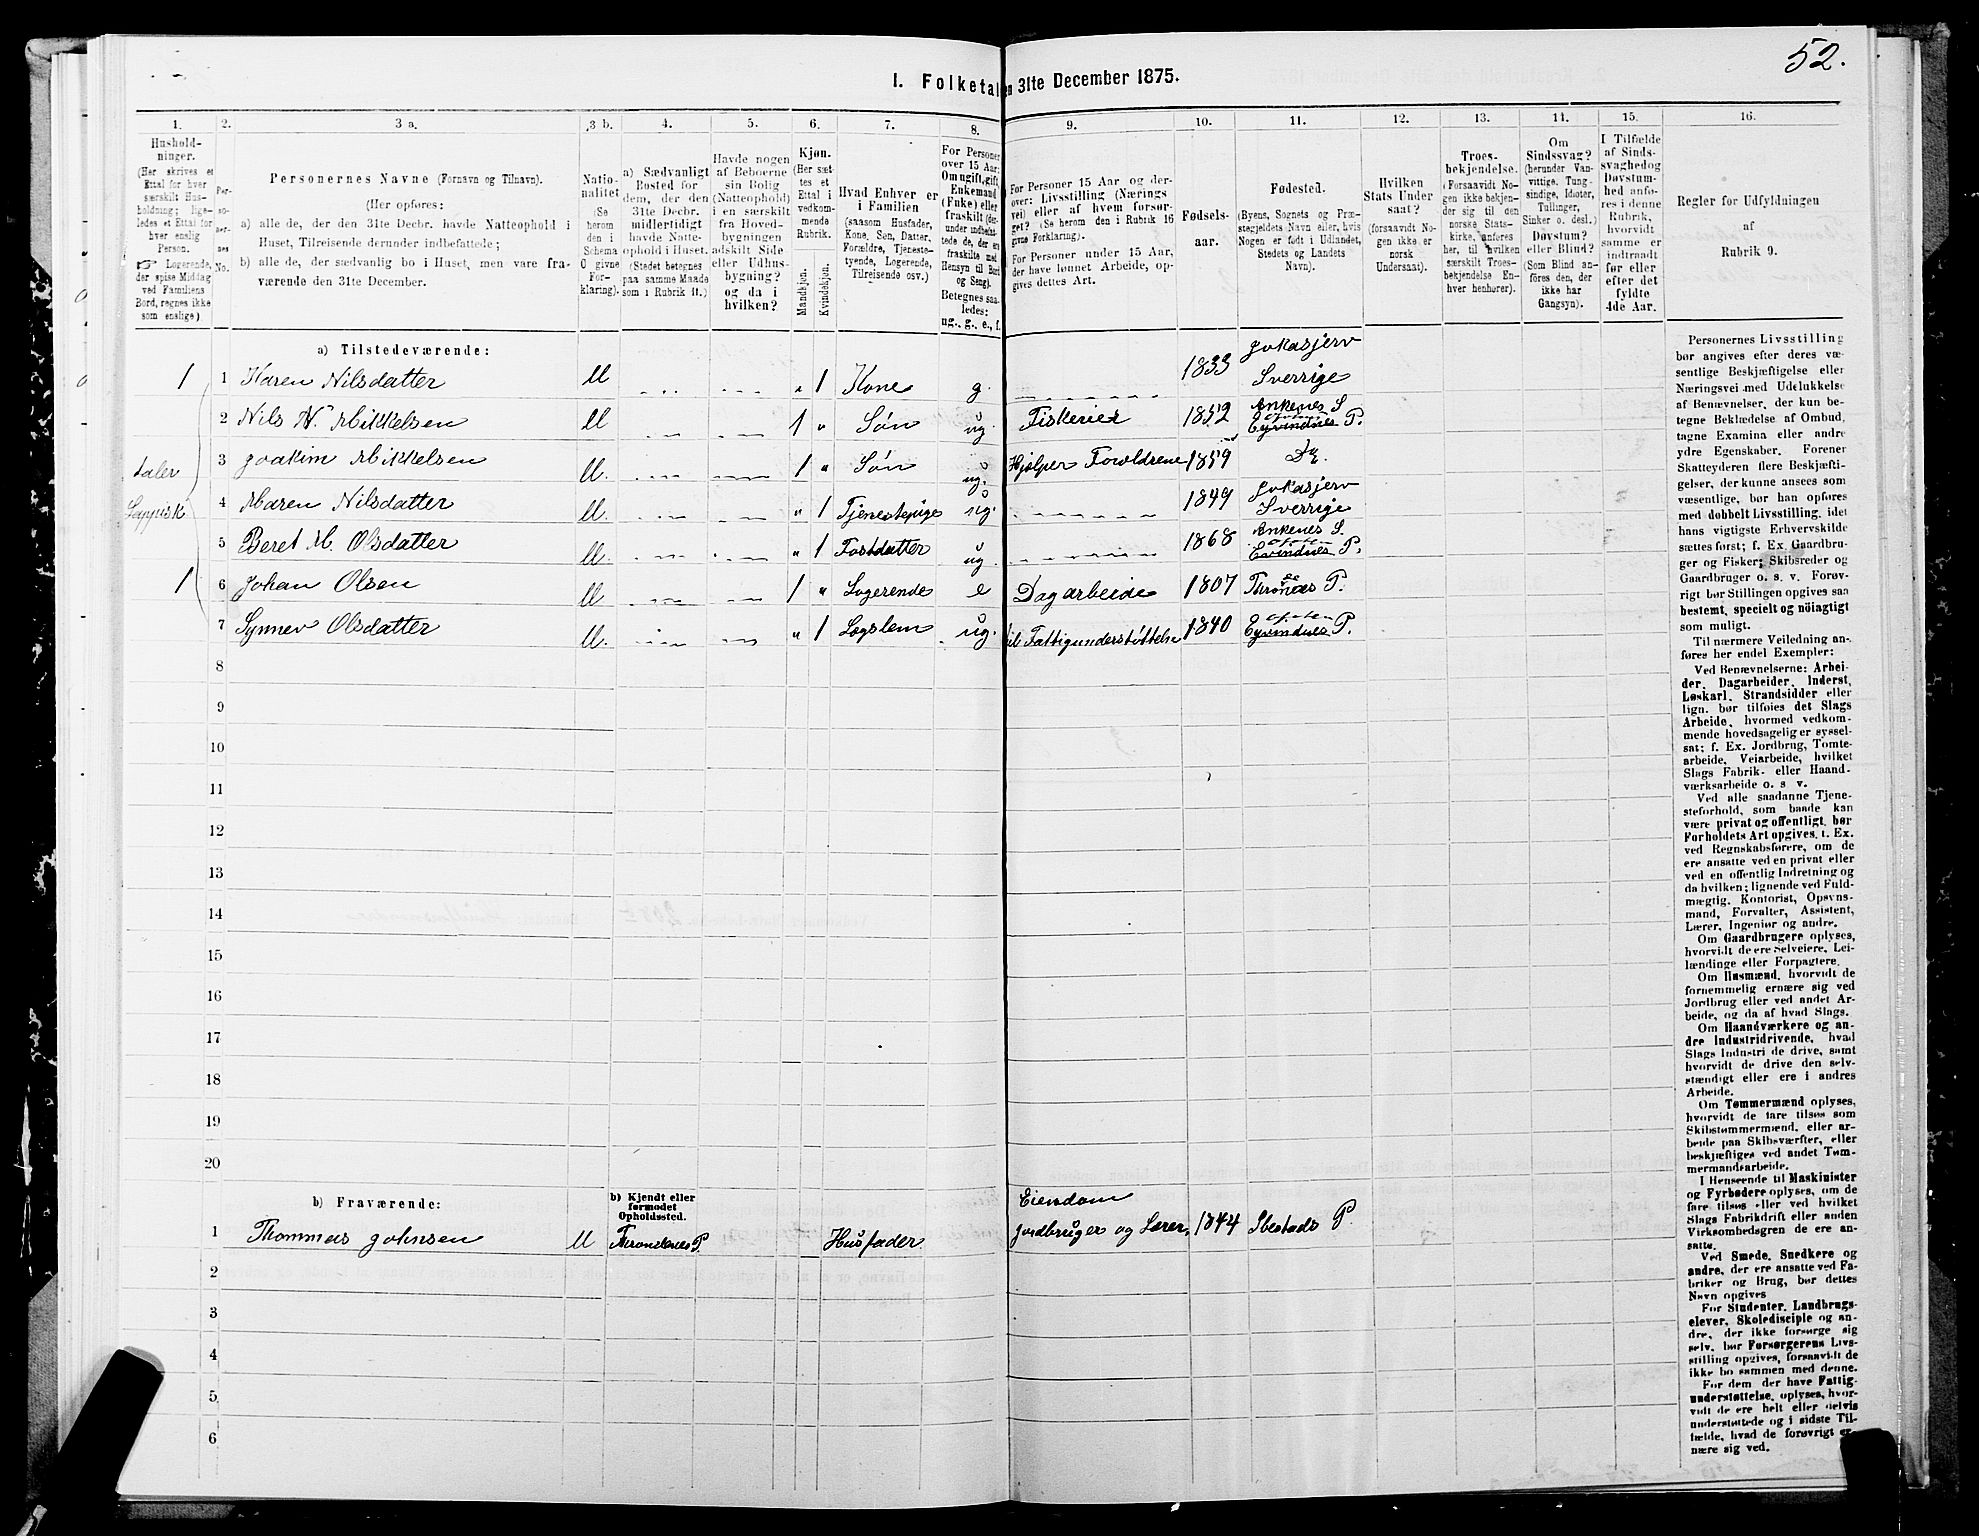 52.
I. Folketal
en 31te December 1875.
1. 2. 3 a. 3 b. 4. 5. 6. 7. 8. 9. 10. 11. 12. 13. 14. 15. 16.
Hushold-
ninger.
(Her skrives et
Ettal for hver
særskilt Hus-
holdning; lige-
ledes et Ettal for
hver enslig
Person.
☞ Logerende,
der spise Middag
ved Familiens
Bord, regnes ikke
som enslige)
Per-
so-
ner-
nes
No.
Personernes Navne (Fornavn og Tilnavn).
(Her opføres:
a) alle de, der den 31te Decbr. havde Natteophold i
Huset, Tilreisende derunder indbefattede;
b) alle de, der sædvanlig bo i Huset, men vare fra-
værende den 31te December.
Natio-
nalitet
(Se
herom
den i
Schema
O givne
For-
klaring).
a) Sædvanligt
Bosted for
dem, der den
31te Decbr.
midlertidigt
havde Natte-
ophold i Huset.
(Stedet betegnes
paa samme Maade
som i Rubrik 11.)
Havde nogen
af Beboerne
sin Bolig
(Natteophold)
i en særskilt
fra Hoved-
bygningen
adskilt Side
eller Udhus-
bygning?
og da i
hvilken?
Kjøn.
(Her sæt-
tes et
Ettal i
vedkom-
mende
Rubrik.
Mandkjøn.
Kvindekjøn.
Hvad Enhver er
i Familien
(saasom Husfader,
Kone, Søn, Datter,
Forældre, Tjeneste-
tyende, Logerende,
Tilreisende osv.)
For Personer
over 15 Aar:
Om ugift, gift,
Enkemand
(Enke) eller
fraskilt (der-
under indbefat-
tede de, der ere
fraskilte med
Hensyn til Bord
og Seng).
Betegnes saa-
ledes:
ug., g., e., f.
For Personer 15 Aar og der-
over: Livsstilling (Nærings-
vei) eller af hvem forsør-
get? (Se herom den i Rubrik 16
givne Forklaring).
For Personer under 15 Aar,
der have lønnet Arbeide, op-
gives dettes Art.
Fødsels-
aar.
Fødested.
(Byens, Sognets og Præ-
stegjeldets Navn eller, hvis
Nogen er født i Udlandet,
Stedets og Landets
Navn).
Hvilken
Stats Under
saat?
(forsaavidt No-
gen ikke er
norsk
Undersaat).
Troes-
bekjendelse.
(Forsaavidt No-
gen ikke bekjen-
der sig til den
norske Stats-
kirke, anføres
her, til hvilken
særskilt Troes-
bekjendelse En-
hver henhører).
Om
Sindssvag?
(herunder Van-
vittige, Tung-
sindige, Idioter,
Tullinger,
Sinker o. desl.)
Døvstum?
eller Blind?
(Som Blind an-
føres den, der
ikke har
Gangsyn).
I Tilfælde
af Sinds-
svaghed og
Døvstum-
hed anfø-
res i denne
Rubrik,
hvorvidt
samme er
indtraadt
før eller
efter det
fyldte
4de Aar.
Regler for Udfyldningen
af
Rubrik 9.
a) Tilstedeværende:
1 1 Karen Nilsdatter U " 1 Kone g. 1833 Jokasjerv Sverrige
2 Nils N. Mikkelsen U 1 " Søn ug. Fiskerier 1852 Ankenes S Ofoten Eyvindnes P.
3 Joakim Mikkelsen U. 1 " Søn ug. Hjelper Forældrene 1859 Do.
4 Maren Nilsdatter U. " 1 Tjenestepige ug. 1849 Jokasjerv Sverrige
5 Beret M. Olsdatter U. " 1 Fostdatter ug. 1868 Ankenes S. Ofoten Evindnes P.
1 6 Johan Olsen U. 1 " Logerende e Dagarbeide 1807 P.
7 Synnev Olsdatter U. " 1 Lægslem ug. Fattigunderstøttelse 1840 Ofoten Eyvindnes P.
taler
Lappisk
8
9
10
11
12
13
14
15
16
17
18
19
20
b) Fraværende:
b) Kjendt eller
formodet
Opholdssted.
1 Thommas Johnsen U Throndenes P. Husfader Eiendom Jordbruger og Lærer 1844 Ibestads P.
2
3
4
5
6
Personernes Livsstilling
bør angives efter deres væ-
sentlige Beskjæftigelse eller
Næringsvei med Udelukkelse
af Benævnelser, der kun be-
tegne Beklædelse af Ombud,
tagne Examina eller andre
ydre Egenskaber. Forener
Skatteyderen flere Beskjæfti-
gelser, der kunne ansees som
væsentlige, bør han opføres
med dobbelt Livsstilling, idet
hans vigtigste Erhvervskilde
sættes først; f. Ex. Gaardbru-
ger og Fisker; Skibsreder og
Gaardbruger o. s. v. Forøv-
rigt bør Stillingen opgives saa
bestemt, specielt og nøiagtigt
som muligt.
Til nærmere Veiledning an-
føres her endel Exempler:
Ved Benævnelserne: Arbei-
der, Dagarbeider, Inderst,
Løskarl, Strandsidder eller
lign. bør tilføies det Slags
Arbeide, hvormed vedkom-
mende hovedsagelig er syssel-
sat; f. Ex. Jordbrug, Tomte-
arbeide, Veiarbeide, hvilket
Slags Fabrik- eller Haand-
værksarbeide o. s v.
Ved alle saadanne Tjene-
steforhold, som baade kan
være privat og offentligt, bør
Forholdets Art opgives, t. Ex.
ved Regnskabsførere, om de
ere ansatte ved en privat eller
ved en offentlig Indretning og
da hvilken; lignende ved Fuld-
mægtig, Kontorist, Opsyns-
mand, Forvalter, Assistent,
Lærer, Ingeniør og andre.
Om Gaardbrugere oplyses,
hvorvidt de ere Selveiere, Lei-
lændinge eller Forpagtere.
Om Husmænd, hvorvidt de
fornemmelig ernære sig ved
Jordbrug eller ved andet Ar-
beide, og da af hvad Slags.
Om Haandværkere og an-
dre Industridrivende, hvad
Slags Industri de drive, samt
hvorvidt de drive den selv-
stændigt eller ere i andres
Arbeide.
Om Tømmermænd oplyses,
hvorvidt de fare tilsøs som
Skibstømmermænd, eller ar-
beide paa Skibsværfter, eller
beskjæftiges ved andet Tøm-
mermandsarbeide.
I Henseende til Maskinister
og Fyrbødere oplyses, om de
fare tilsøs eller ved hvilket
Slags Fabrikdrift eller anden
Virksomhedsgren de ere an-
satte.
Ved Smede, Snedkere og
andre, der ere ansatte ved Fa-
briker og Brug, bør dettes
Navn opgives
For Studenter, Landbrugs-
elever, Skoledisciple og an-
dre, der ikke forsørge sig
selv, bør Forsørgerens Livs-
stilling opgives, forsaavidt de
ikke bo sammen med denne.
For dem, der have Fattig-
understøttelse, oplyses, hvor-
vidt de ere helt eller delvis
understøttede og i sidste Til-
fælde, hvad de forøvrigt er-
nære sig ved.